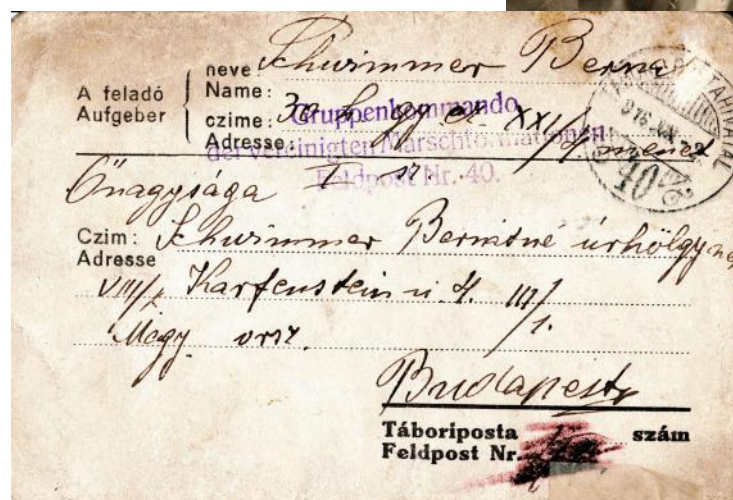 A feladó
Aufgeber
neve:
Name:
Schwimmer Bernát
czime:
Adresse:
30 h. gy. e. XXI/4 menet
I sz
Gruppenkommando
der vereinigten Marschformationen
Feldpost Nr. 40.
40
Őnagysága
Czim:
Adresse
Schwimmer Bernátné úrhölgynek
VIII/k Karfenstein u. 4. III/1.
Magy orsz.
Budapest
Táboriposta szám
Feldpost Nr.